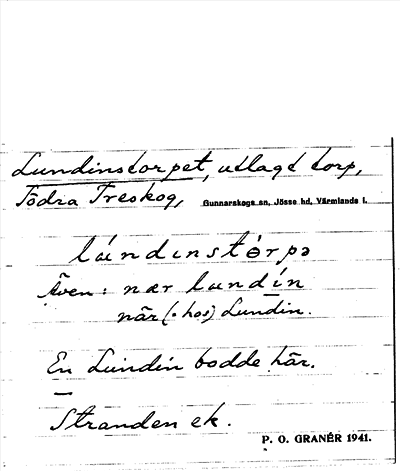 Lundinstorpet, utlagt torp,
Södra Treskog, Gunnarskogs sn, Jösse hd, Värmlands l.
lúndɪnstòrpə
Även: nær lundín
när (= hos) Lundin.
En Lundin bodde här.
—
Stranden ek.
P. O. GRANÉR 1941.